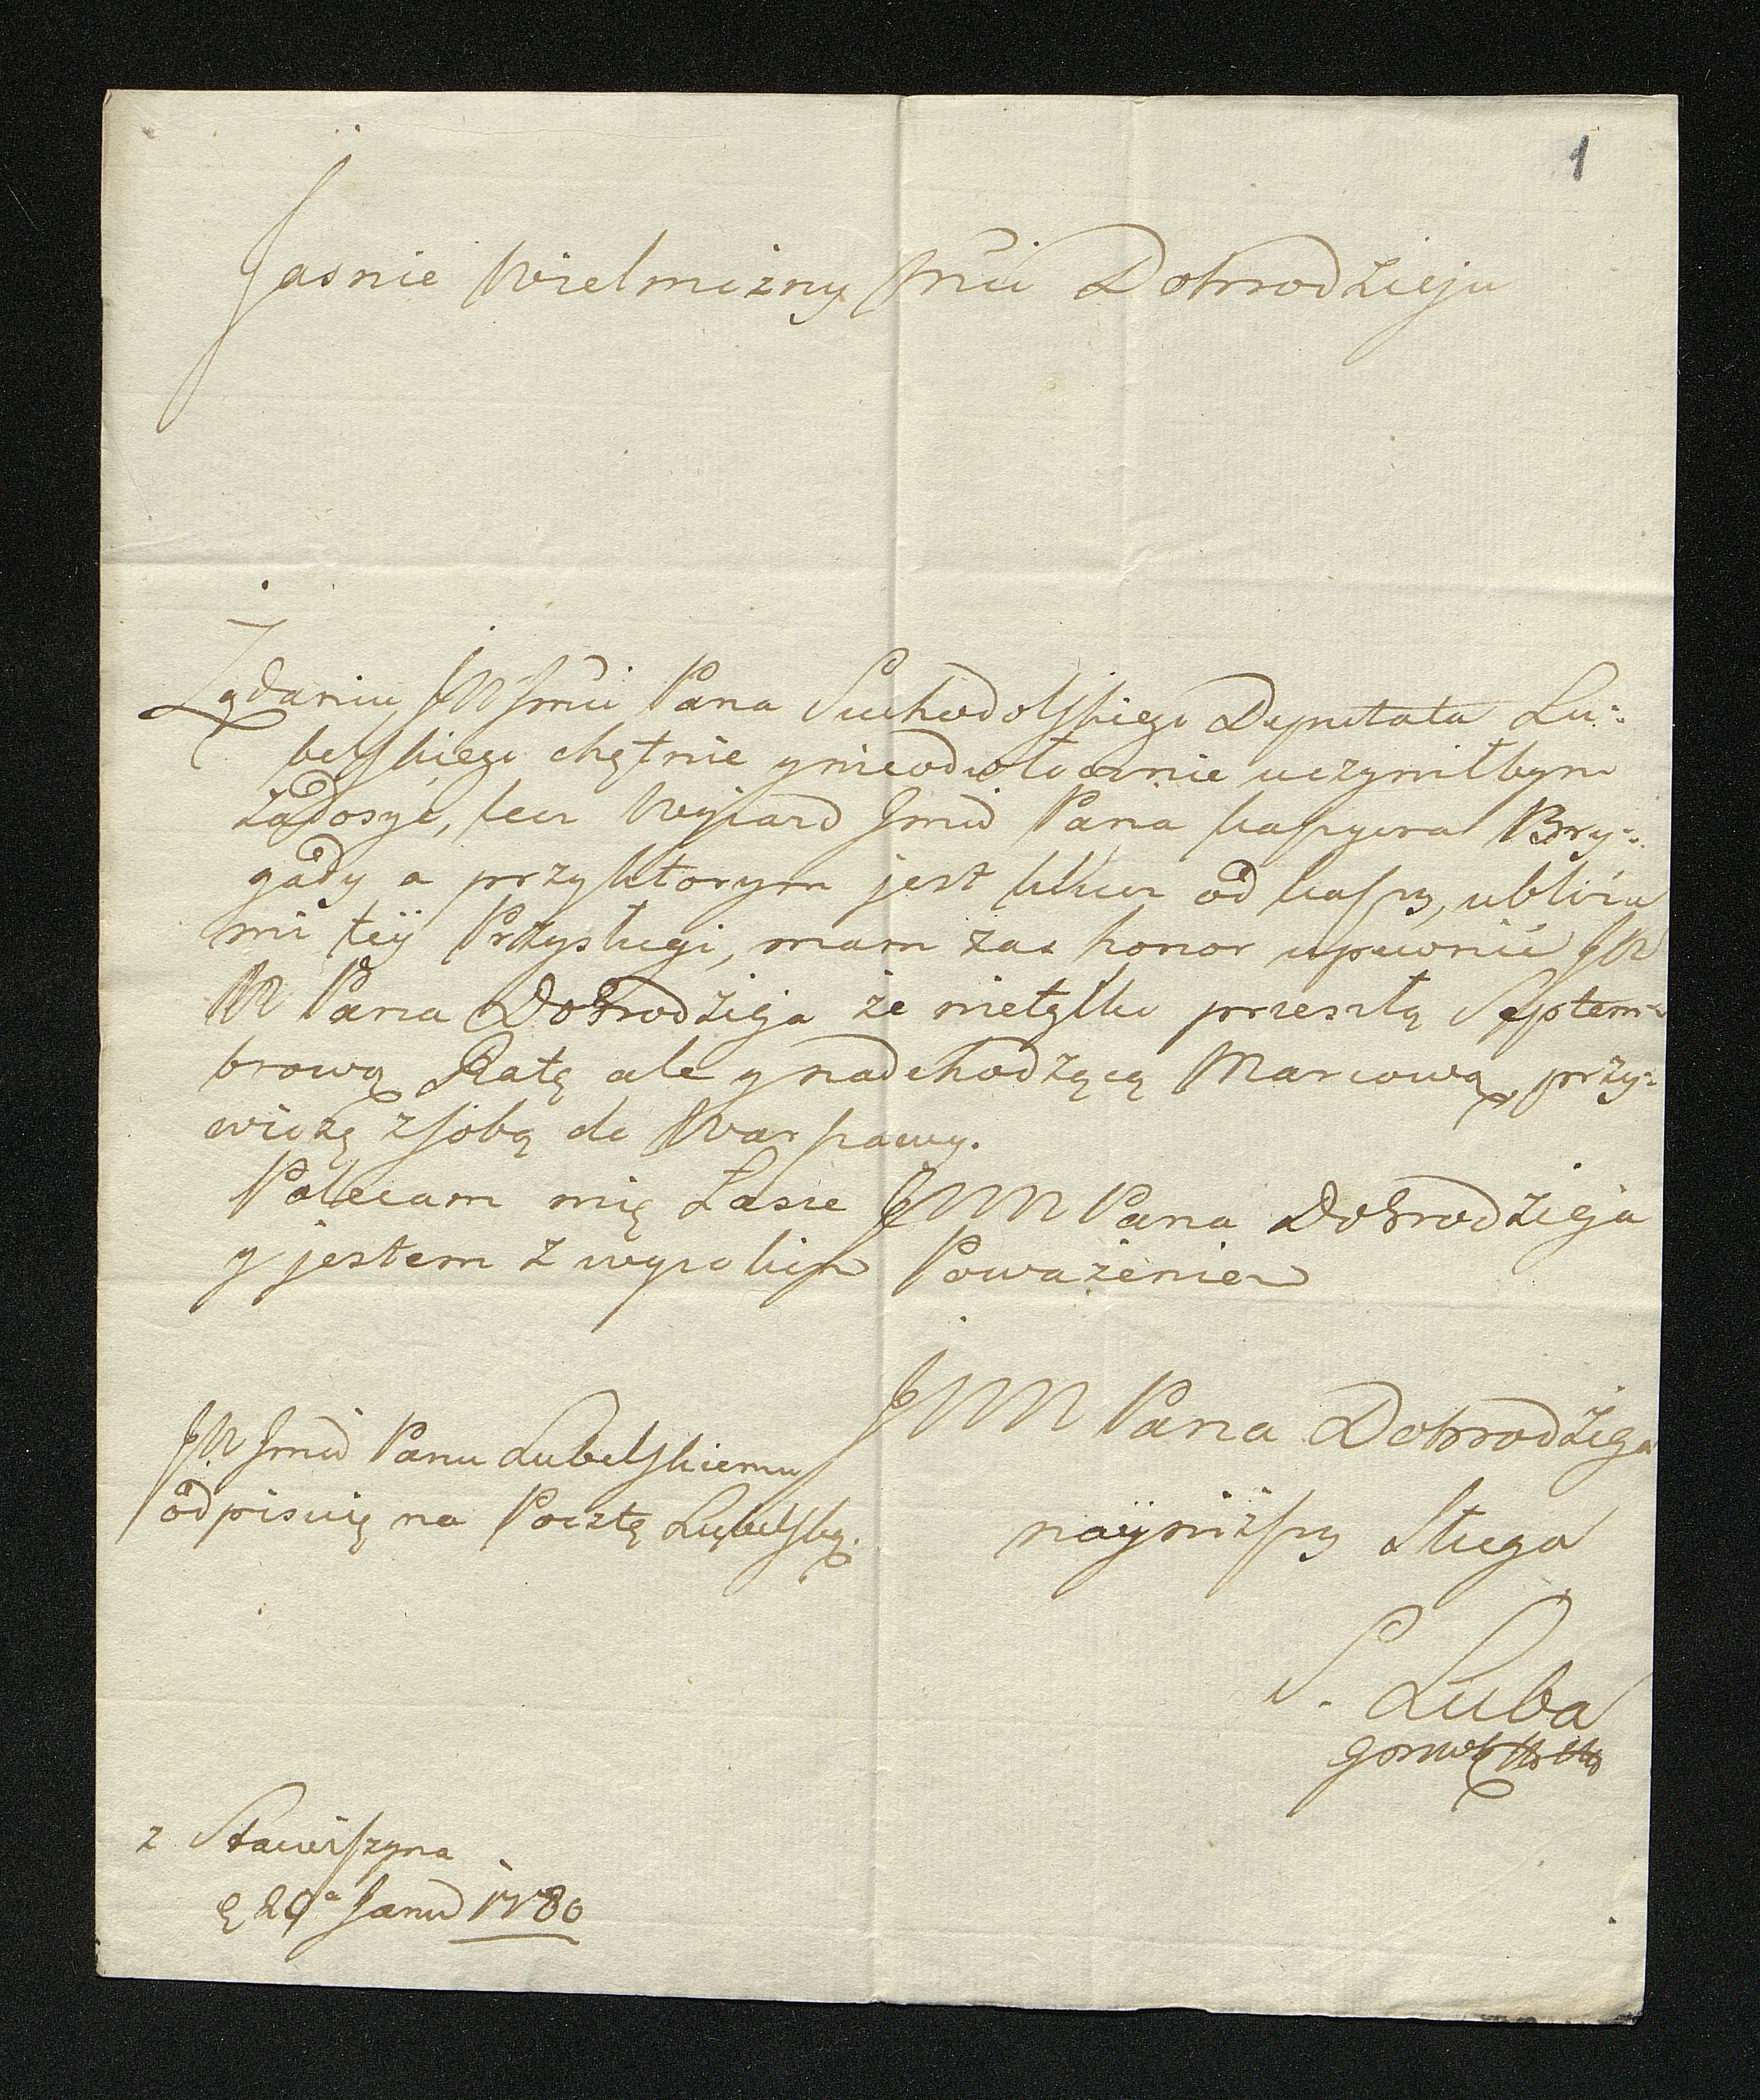 1
Jasnie Wielmożny Mći Dobrodzieju
Żądaniu JW Jmći Pana Suchodolskiego Deputata Lu-
belskiego chętnie y nieodwłocznie uczyniłbym
zadosyć, lecz Wyjazd Jmći Pana Kassyera Bry-
gady a przy ktorym jest klucz od kassy, ubliża
mi tey Przysługi, mam zas honor upewnić JW
W Pana Dobrodzieja że nietylko przeszłą Septem-
brową Ratę ale y nadchodzącą Marcową przy-
wiozę z sobą do Warszawy.
Polecam mię Łasce JWW Pana Dobrodzieja
y jestem z wysokim Poważeniem
JWW Pana Dobrodzieja
JW Jmći Panu Lubelskiemu
odpisuię na Pocztę Lubelską.
nayniższy Sługa
S. Luba
z Stawiszyna
29ª Janu 1780